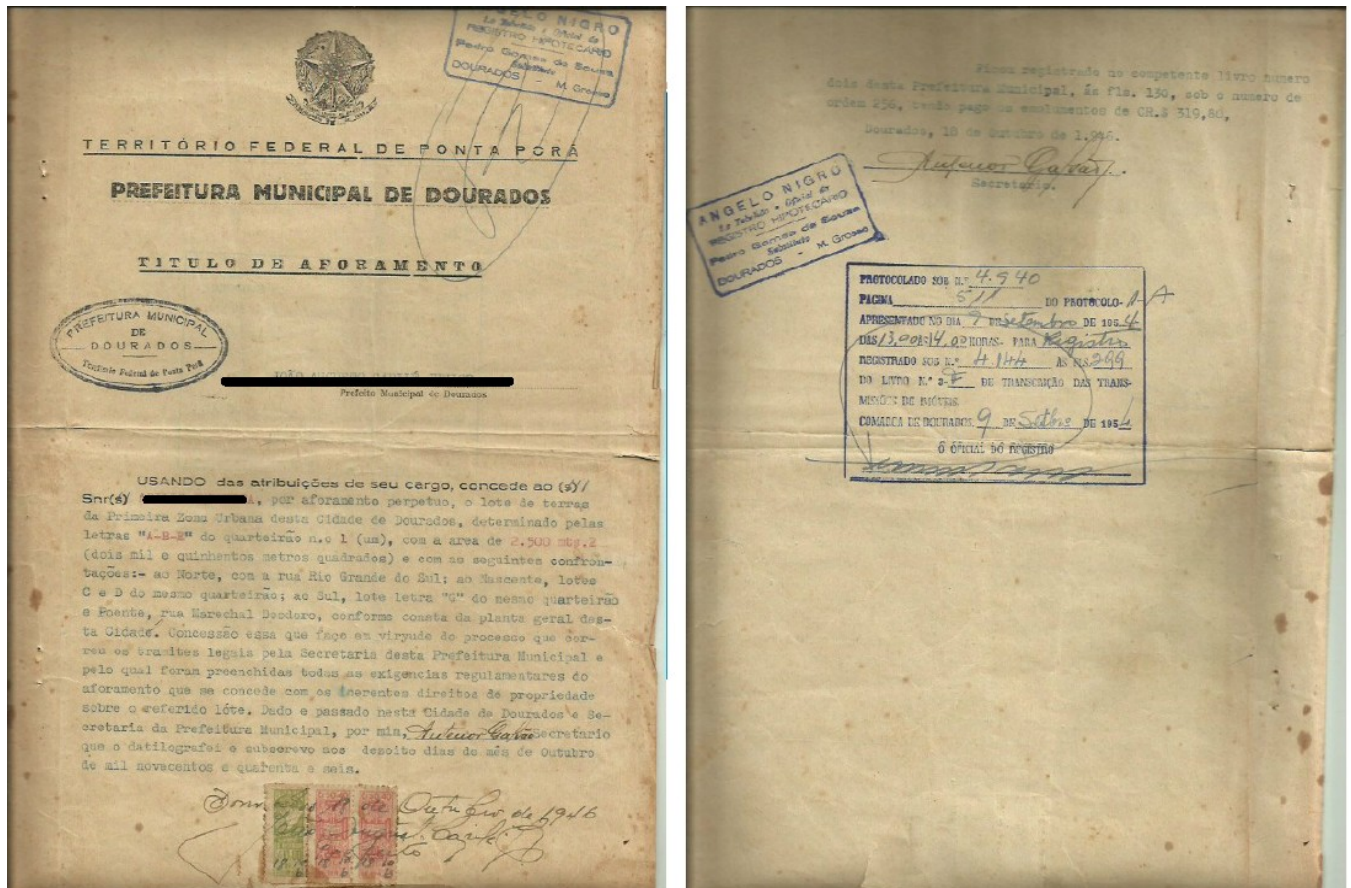 ANGELO NIGRO
1o Tabelião e Oficial do
REGISTRO HIPOTECÁRIO
Pedro Gomes de Souza
Substituto
DOURADOS - M. Grosso
TERRITÓRIO FEDERAL DE PONTA PORÃ
PREFEITURA MUNICIPAL DE DOURADOS
TITULO DE AFORAMENTO
PREFEITURA MUNICIPAL
DE
DOURADOS
Território Federal de Ponta Porã
Prefeito Municipal de Dourados
USANDO das atribuições de seu cargo, concede ao (s)
Snr(s) , por aforamento perpetuo, o lote de terras
da Primeira Zona Urbana desta Cidade de Dourados, determinado pelas
letras "A-B-E" do quarteirão n.o 1 (um), com a area de 2.500 mts.2
(dois mil e quinhentos metros quadrados) e com as seguintes confron-
tações:- ao Norte, com a rua Rio Grande do Sul; ao Nascente, lotes
C e D do mesmo quarteirão; ao Sul, lote letra "G" do mesmo quarteirão
e Poente, rua Marechal Deodoro, conforme consta da planta geral des-
ta Cidade. Concessão essa que faço em viryude do processo que cor-
reu os tramites legais pela Secretaria desta Prefeitura Municipal e
pelo qual foram preenchidas todas as exigencias regulamentares do
aforamento que se concede com os inerentes direitos de propriedade
sobre o referido lóte. Dado e passado nesta Cidade de Dourados e Se-
cretaria da Prefeitura Municipal, por mim, Secretario
que o datilografei e subscrevo aos desoito dias do mês de Outubro
de mil novecentos e quarenta e seis.
18 de Outubro de 1946
Ficou registrado no competente livro numero
dois desta Prefeitura Municipal, ás fls. 130, sob o numero de
ordem 256, tendo pago os emolumentos de CR.$ 319,80,
Dourados, 18 de Outubro de 1.946.
Secretario.
ANGELO NIGRO
1o Tabelião e Oficial do
REGISTRO HIPOTECÁRIO
Pedro Gomes de Souza
Substituto
DOURADOS - M. Grosso
PROTOCOLADO SOB N.º 4.940
PAGINA 511 DO PROTOCOLO- 1-A
APRESENTADO NO DIA 9 DE Setembro DE 1954
DAS 13,00 ÀS 14,00 HORAS- PARA Registro
REGISTRADO SOB N.º 4.144 ÀS FLS. 299
DO LIVRO N.º 3-F DE TRANSCRIÇÃO DAS TRANS-
MISSÕES DE IMÓVEIS.
COMARCA DE DOURADOS. 9 DE Setbro DE 1954
O OFICIAL DO REGISTRO